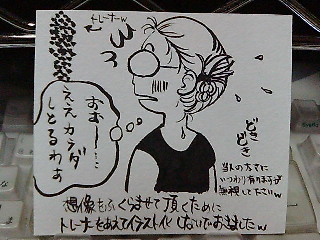 トレーナーw
おぉー…
ええカラダ
しとるわぁ
どき
どき
当人の方さに
いつわり有りますが
無視して下さいw
想像をふくらませて頂くために
トレーナーをあえてイラスト化しないでおきましたw